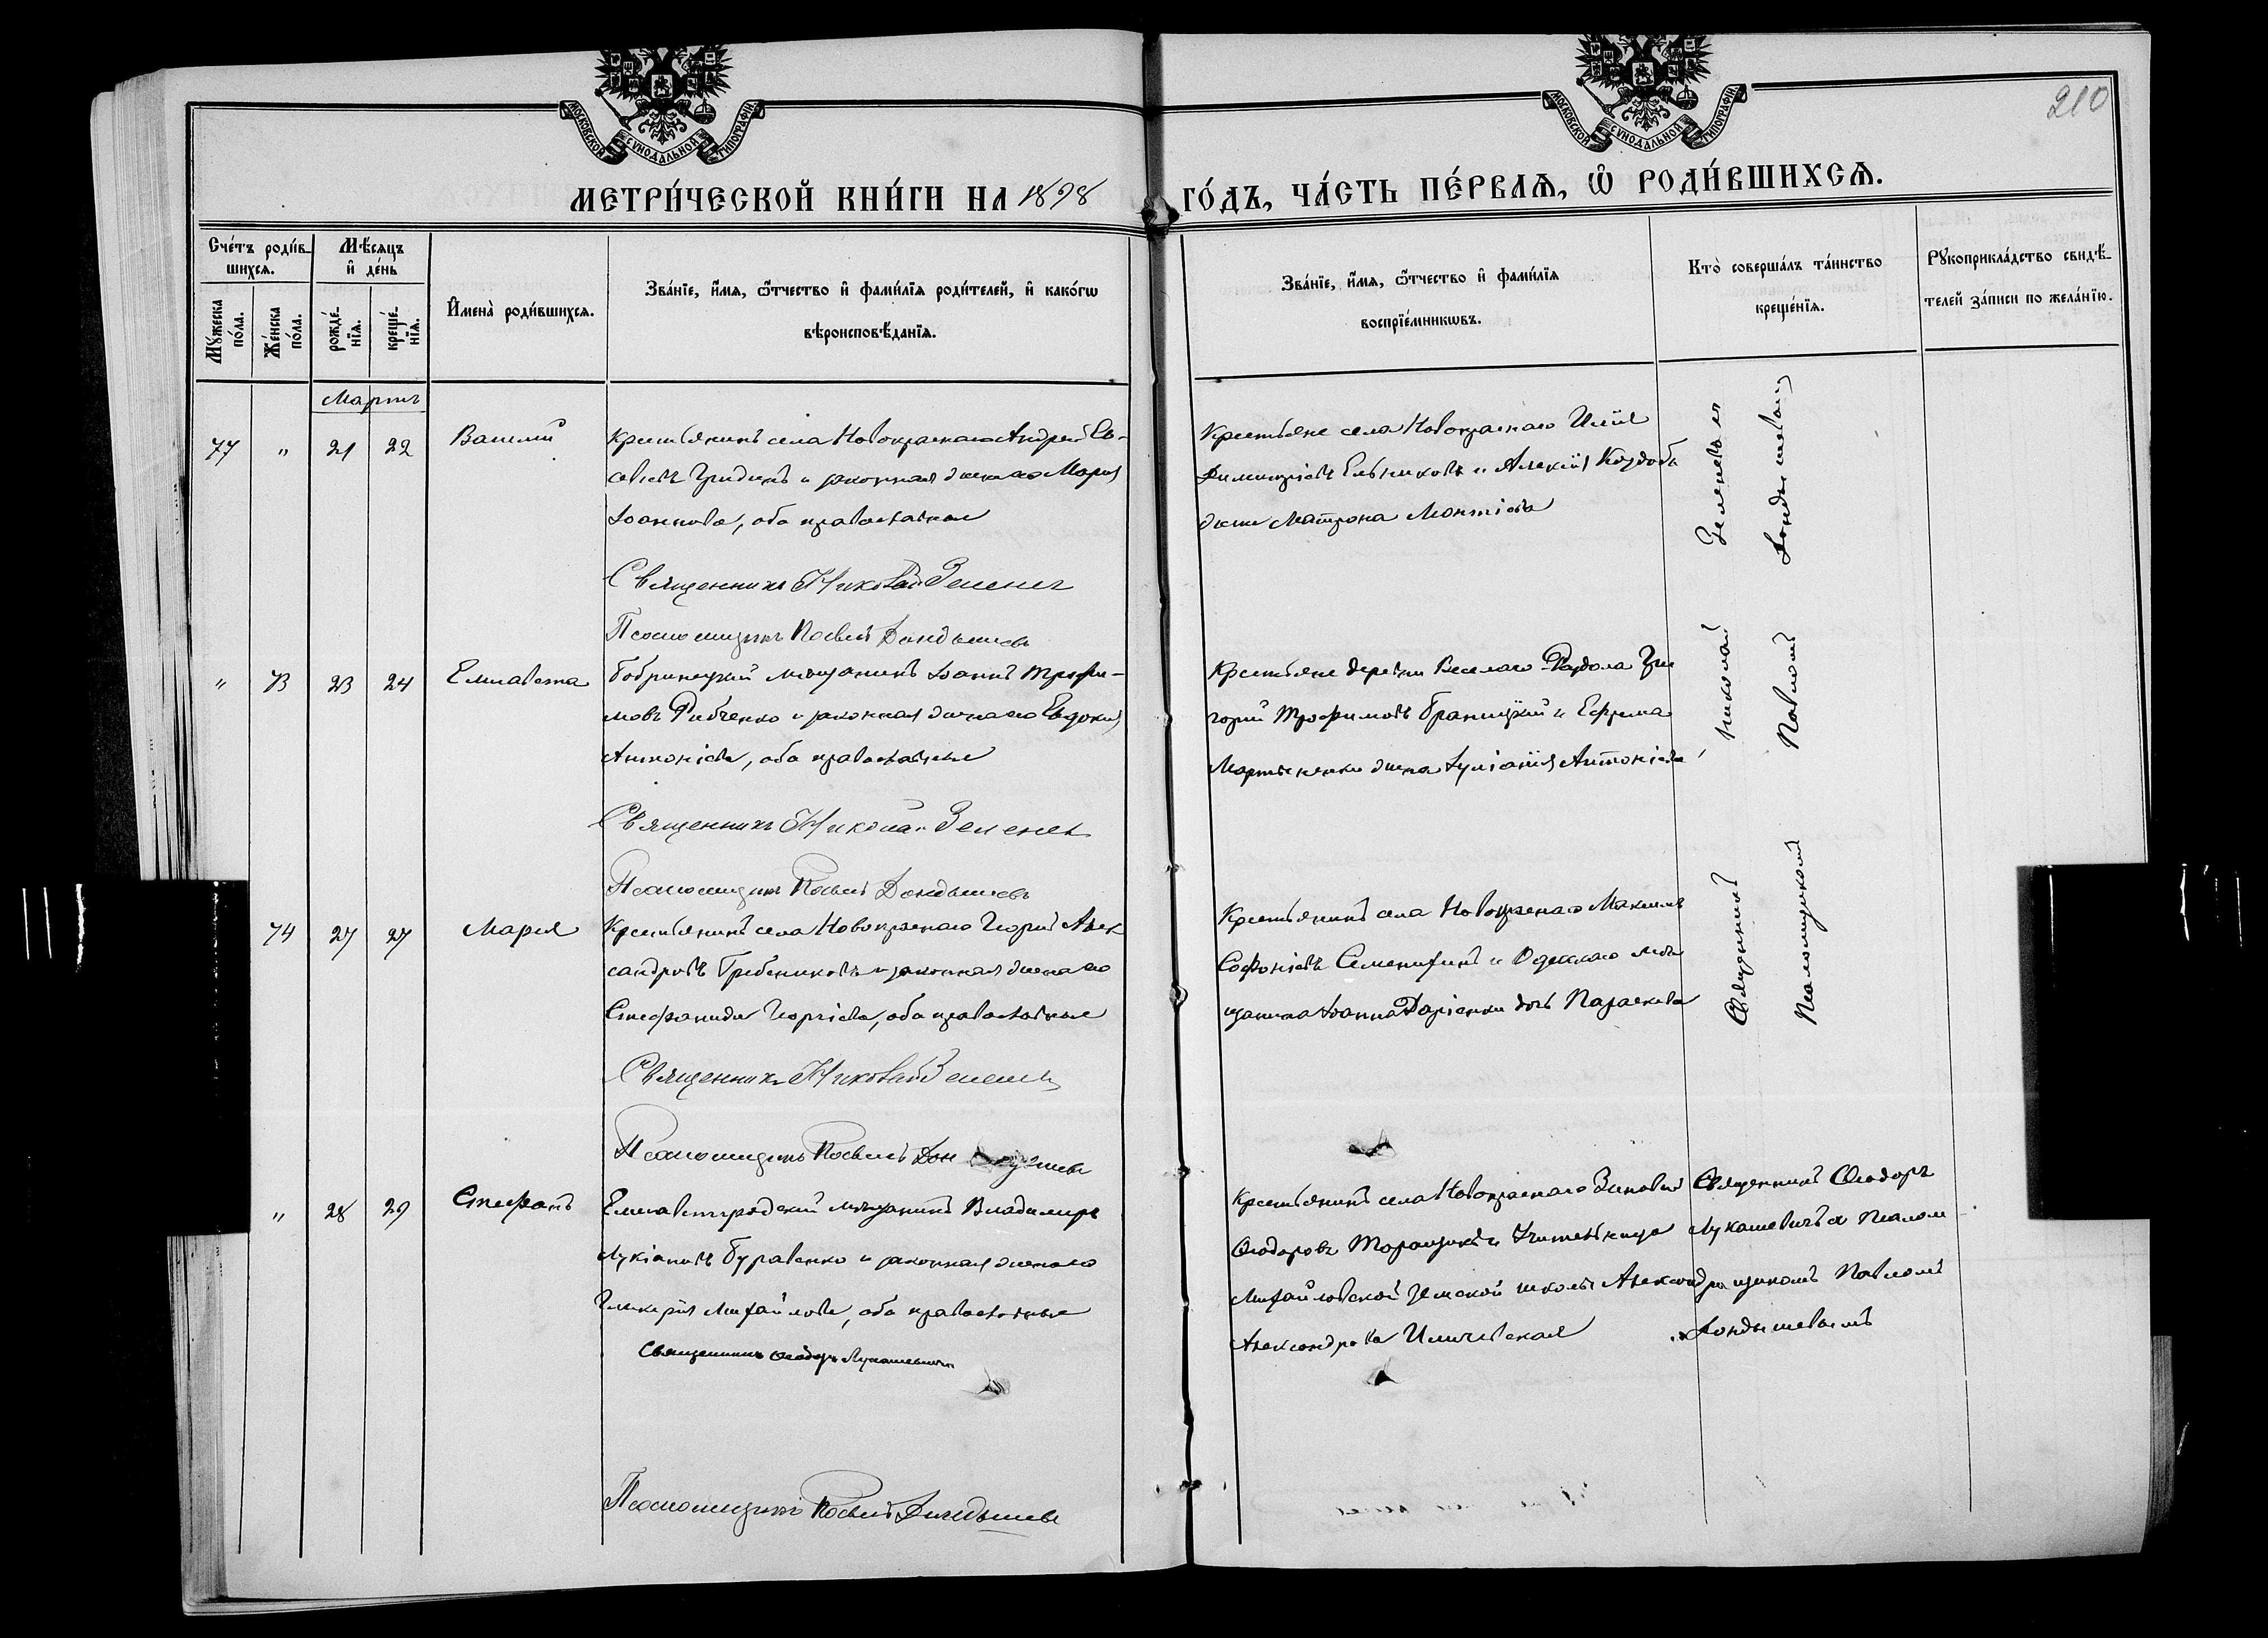 210
МОСКОВСКОЙ СѴНОДАЛЬНОЙ ТИПОГРАФІИ
МОСКОВСКОЙ СѴНОДАЛЬНОЙ ТИПОГРАФІИ
МЕТРИ́ЧЕСКОЙ КНИ́ГИ НА 1898 ГО́ДЪ, ЧА́СТЬ ПЕ́РВАѦ, Ѡ҆ РОДИ́ВШИХСѦ.
Сче́тъ роди́в-
шихсѧ.
Мѣ́сѧцъ
и҆ де́нь
Мꙋ́жеска по́ла.
Же́нска по́ла.
рожде́-нїѧ.
креще́-нїѧ.
И҆мена̀ роди́вшихсѧ.
Зва́нїе, и҆́мѧ, ѻ҆́тчество и҆ фами́лїѧ роди́телей, и҆ како́гѡ
вѣроисповѣ́данїѧ.
Зва́нїе, и҆́мѧ, ѻ҆́тчество и҆ фами́лїѧ
воспрїе́мникѡвъ.
Кто̀ соверша́лъ та́инство
креще́нїѧ.
Рꙋкоприкла́дство свидѣ́-
телей за́писи по жела́нїю.
Мартъ
77 " 21 22 Василій
Крестьянинъ села Новокраснаго Андрей Ев-
сеевъ Гридинъ и законная жена его Марія
Іоаннова, оба православные
Священникъ Николай Зеленев
Псаломщикъ Павелъ Дондышевъ
Крестьяне села Новокраснаго Илія
Димитріевъ Ельниковъ и Алексія
жена Матрона
" 73 23 24 Елисавета
Бобринецкій мѣщанинъ Іоаннъ Трофи-
мовъ Рибченко и законная жена его Евдокія
Антоніева, оба православные
Священникъ Николай Зеленев
Псаломщикъ Павелъ Дондышевъ
Крестьяне деревни Веселаго Раздола Гри
горій Трофимовъ Границкій и Ефрема
Мартыненки жена Іуліанія Антоніева
74 27 27 Марія
Крестьянинъ села Новокраснаго Георгій Алек
сандровъ Гребениковъ и законная жена его
Стефанида Георгіева, оба православные
Священникъ Николай Зеленев
Псаломщикъ Павелъ Дондышевъ
Крестьянинъ села Новокраснаго Максимъ
Софоніевъ и Одесскаго мѣ
щанина Іоанна Даріенки дочь Параскева
Священникъ Николай Зеленевъ и
Псаломщикомъ Павломъ Дондышевымъ
" 28 29 Стефанъ
Елисаветградскій мѣщанинъ Владимиръ
Лукіановъ Буравенко и законная жена его
Гликерія Михайлова, оба православные
Священникъ Ѳеодоръ Лукашевичъ
Псаломщикъ Павелъ Дондышевъ
Крестьянинъ села Новокраснаго Зиновій
Ѳеодоровъ и Учительница
Михайловской Земской школы Александра
Александрова
Священникъ Ѳеодоръ
Лукашевичъ съ Псалом
щикомъ Павломъ
Дондышевымъ